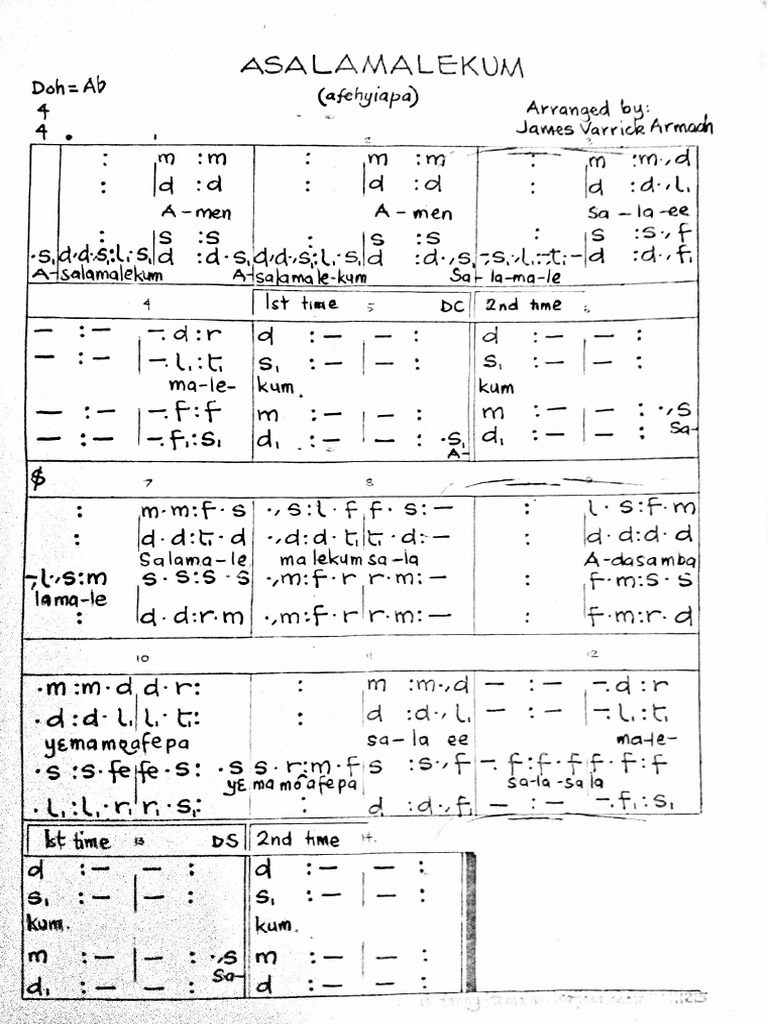 ASALAMALEKUM
(afehyiapa)
Doh = Ab
4
4
Arranged by:
James Varrick Armaah
1 2 3
: |m :m : |m :m : |m :m.,d
: |d :d : |d :d : |d :d.,l₁
A-men A-men Sa-la-ee
: |s :s : |s :s : |s :s.,f
.s₁ d.d.s₁:l₁.s₁ |d :d.s₁ d.d.,s₁:l₁.s₁ |d :d.,s₁ -.s₁,l₁:-.t₁.- |d :d.,f₁
A-salamalekum A-salamale-kum Sa-la-ma-le
4 1st time 5 DC 2nd time 6
— :— |-.d:r d :— |— : d :— |— :
— :— |-.l₁:t₁ s₁ :— |— : s₁ :— |— :
ma-le- kum. kum
— :— |-.f:f m :— |— : m :— |— : .,s
— :— |-.f₁:s₁ d₁ :— |— : .s₁ d₁ :— |— : Sa-
A-
$ 7 8 9
: |m.m:f.s .,s:l.f |f.s:— : |l.s:f.m
: |d.d:t₁.d .,d:d.t₁ |t₁.d:— : |d.d:d.d
Salama-le malekum sa-la A-dasamba
-,l.,s:m |s.s:s.s .,m:f.r |r.m:— : |f.m:s.s
lama-le
: |d.d:r.m .,m:f.r |r.m:— : |f.m:r.d
10 11 12
.m:m.d |d.r: : |m :m.,d — :— |-.d:r
.d:d.l₁ |l₁.t₁: : |d :d.,l₁ — :— |-.l₁:t₁
yɛmamoafepa sa-la ee ma-le-
.s:s.fe |fe.s: .s s.r:m.f |s :s.,f -.f:f.f |f.f:f
yɛ mamoafepa sa-la-sala
.l₁:l₁.r₁ |r₁.s₁: : |d :d.,f₁ — :— |-.f₁:s₁
1st time 13 DS 2nd time 14.
d :— |— : d :— |— :
s₁ :— |— : s₁ :— |— :
kum. kum.
m :— |— : .,s m :— |— :
Sa-
d₁ :— |— : d :— |— :